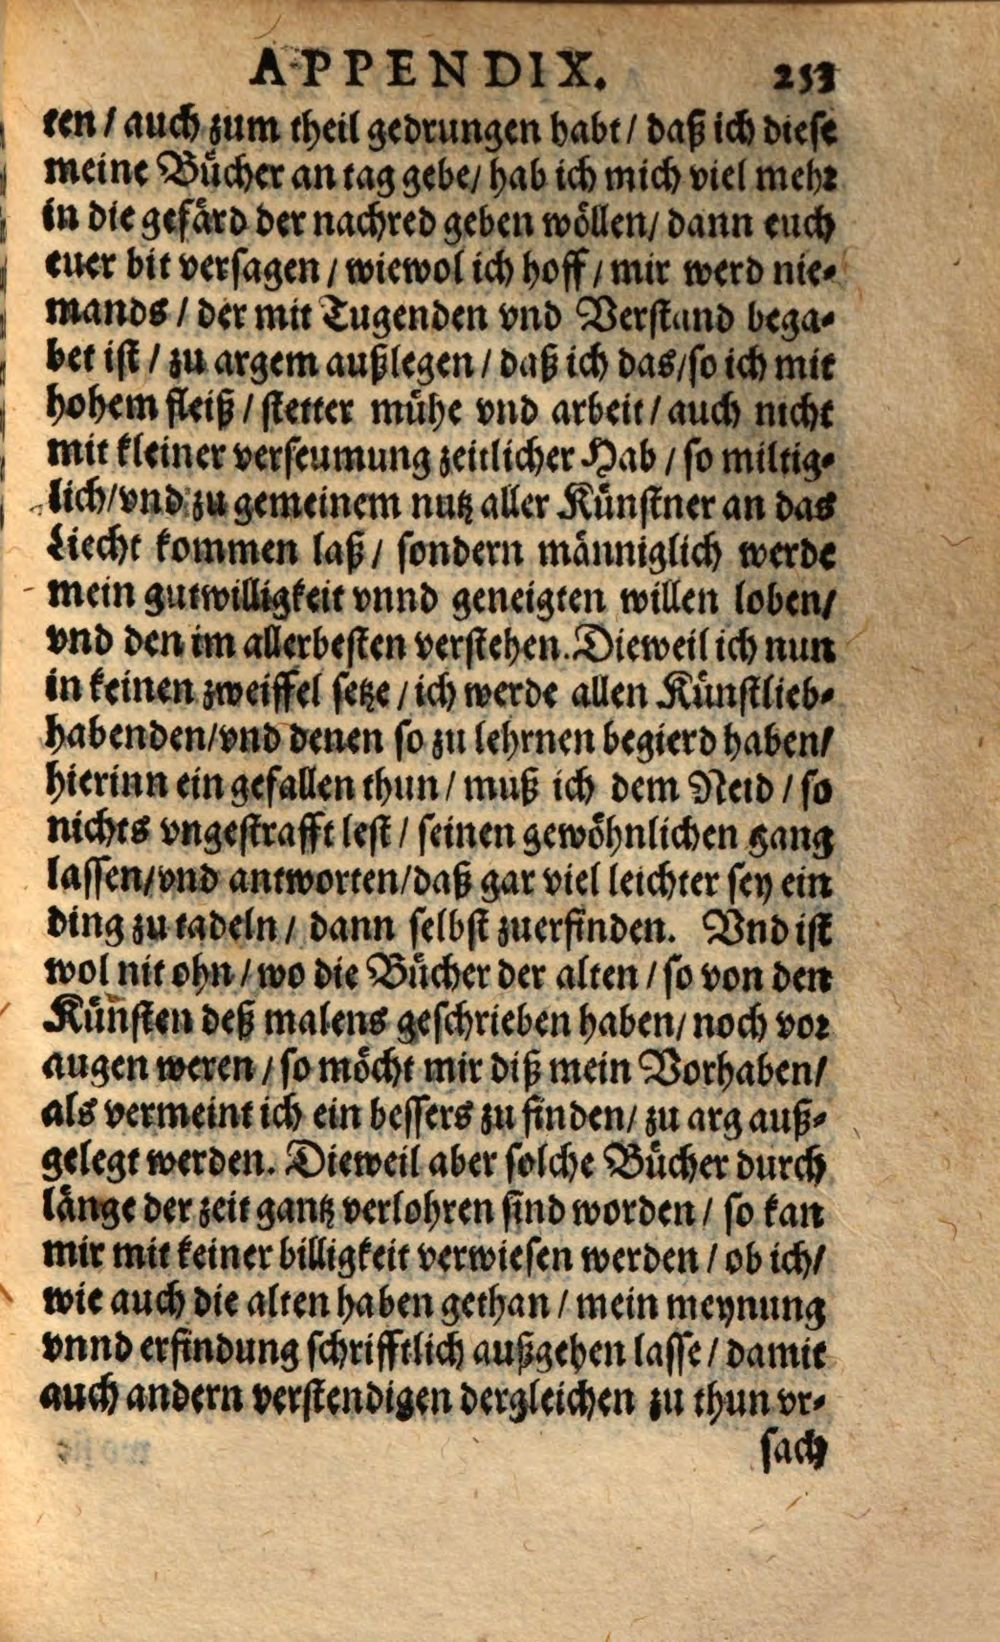 APPENDIX. 253
ten / auch zum theil gedrungen habt / daß ich diese
meine Bücher an tag gebe / hab ich mich viel mehr
in die gefärd der nachred geben wöllen / dann euch
euer bit versagen / wiewol ich hoff / mir werd nie-
mands / der mit Tugenden vnd Verstand bega-
bet ist / zu argem außlegen / daß ich das / so ich mit
hohem fleiß / stetter mühe vnd arbeit / auch nicht
mit kleiner verseumung zeitlicher Hab / so miltig-
lich / vnd zu gemeinem nutz aller Künstner an das
Liecht kommen laß / sondern männiglich werde
mein gutwilligkeit vnnd geneigten willen loben /
vnd den im allerbesten verstehen. Dieweil ich nun
in keinen zweiffel setze / ich werde allen Künstlieb-
habenden / vnd denen so zu lehrnen begierd haben /
hierinn ein gefallen thun / muß ich dem Neid / so
nichts vngestrafft lest / seinen gewöhnlichen gang
lassen / vnd antworten / daß gar viel leichter sey ein
ding zu tadeln / dann selbst zuerfinden. Vnd ist
wol nit ohn / wo die Bücher der alten / so von den
Künsten deß malens geschrieben haben / noch vor
augen weren / so möcht mir diß mein Vorhaben /
als vermeint ich ein bessers zu finden / zu arg auß-
gelegt werden. Dieweil aber solche Bücher durch
länge der zeit gantz verlohren sind worden / so kan
mir mit keiner billigkeit verwiesen werden / ob ich /
wie auch die alten haben gethan / mein meynung
vnnd erfindung schrifftlich außgehen lasse / damit
auch andern verstendigen dergleichen zu thun vr-
sach